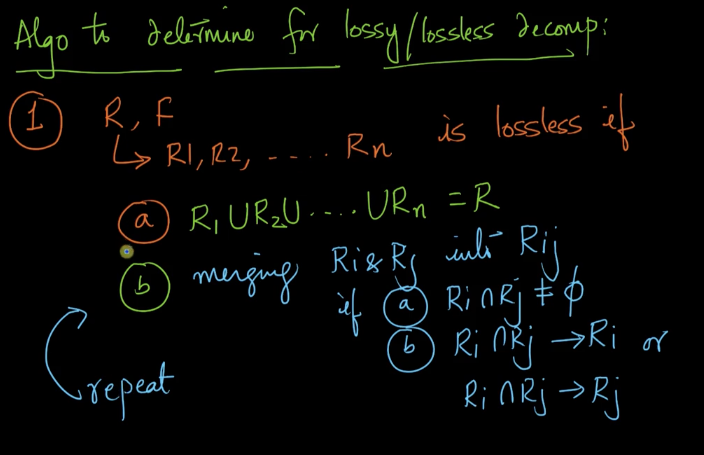 Algo to determine for lossy/lossless decomp:
1 R, F
↳ R1, R2, ..... Rn is lossless if
a R₁ ∪ R₂ ∪ ..... ∪ Rn = R
b merging Ri & Rj into Rij
if a Ri ∩ Rj ≠ ϕ
b Ri ∩ Rj → Ri or
Ri ∩ Rj → Rj
repeat